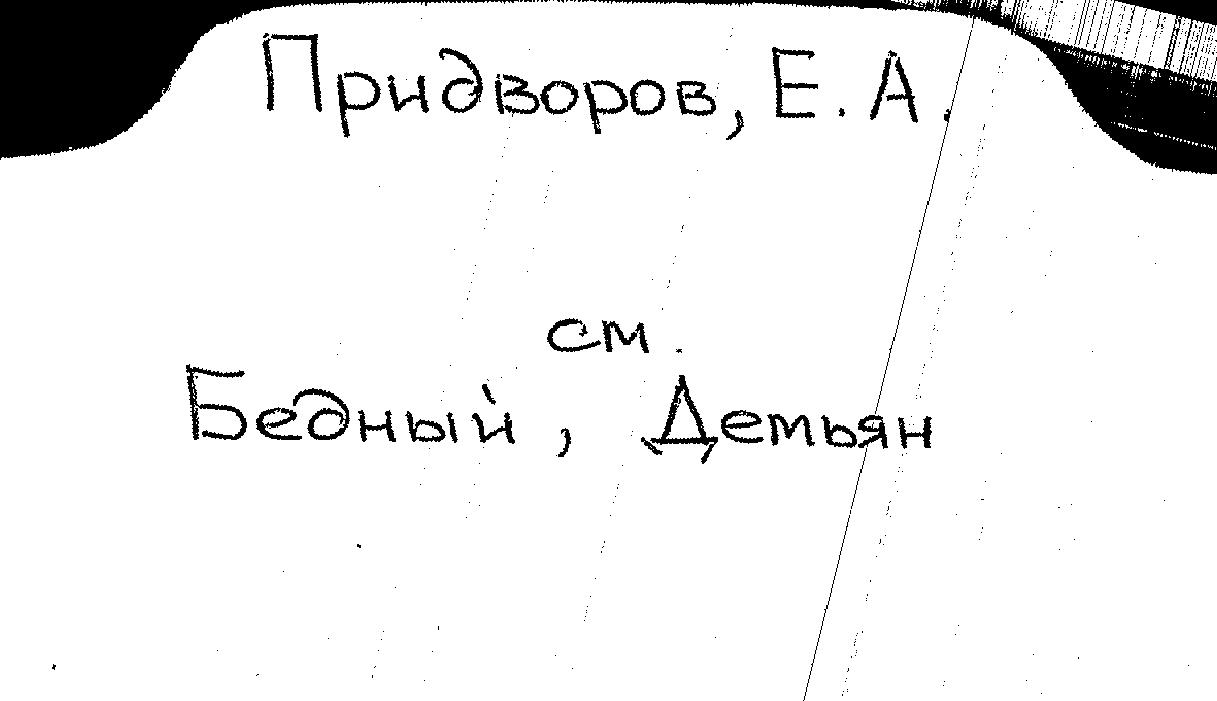 Придворов, Е. А.
см.
Бедный, Демьян